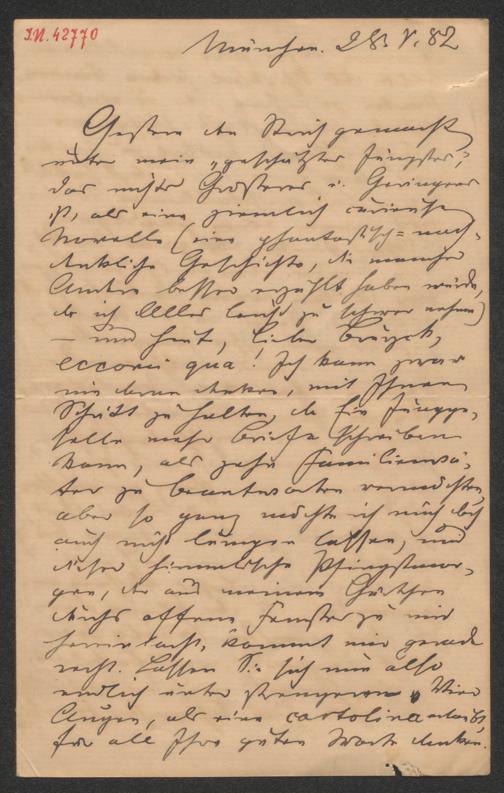 I.N. 42770
München. 28. V. 82
Gestern den Strich gemacht
unter mein „geschütztes Jüngstes",
das nichts Größeres u. Geringeres
ist, als eine ziemlich curiose
Novelle (eine phantastisch=nach-
denkliche Geschichte, die mancher
Andre besser erzählt haben würde,
da ich Alles leicht zu schwer nehme)
— und heut, lieber
eccomi qua! Ich kann zwar
nie daran denken, mit Ihnen
Schritt zu halten, da Ein Jungge-
selle mehr Briefe schreiben
kann, als zehn Familienvä-
ter zu beantworten vermöchten,
aber so ganz möchte ich mich doch
auch nicht lumpen lassen, und
dieser himmlische Pfingstmor-
gen, der aus meinem Gärtchen
durchs offene Fenster zu mir
hereinlacht, kommt mir gerade
recht. Lassen Sie sich nun also
endlich unter strengeren Vier
Augen, als eine cartolina erlaubt,
für all Ihre guten Worte danken.